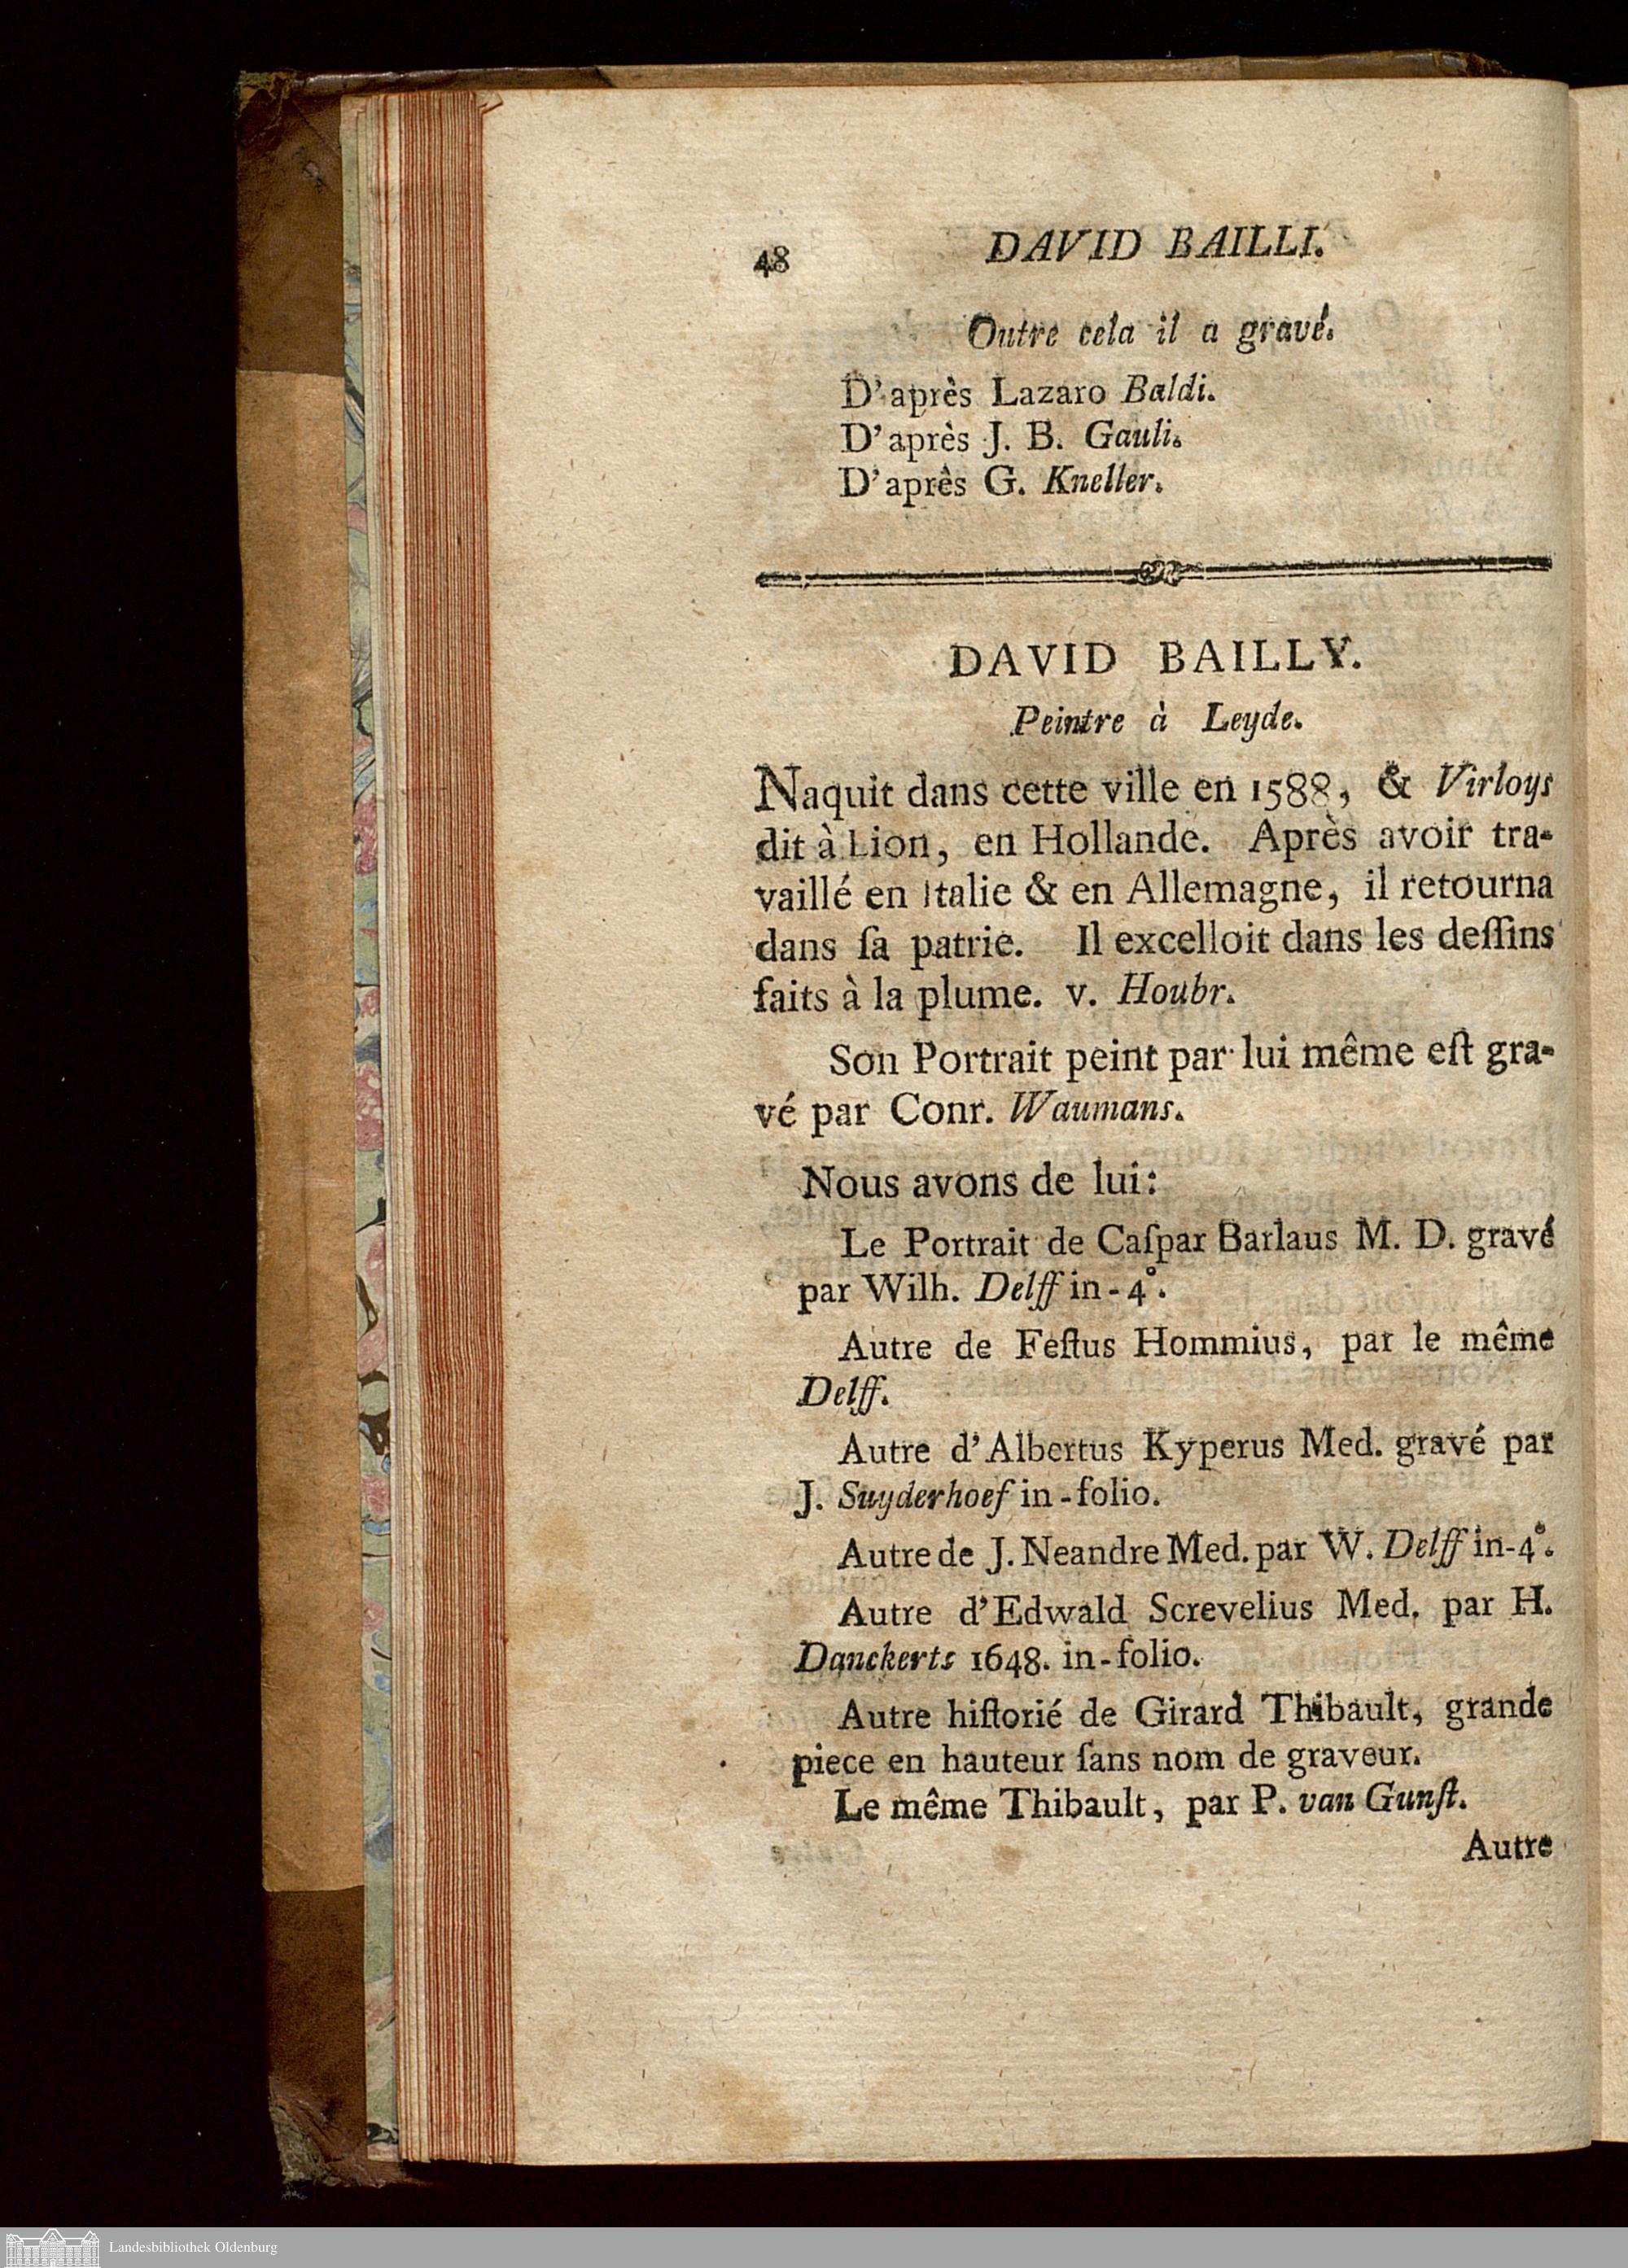 48 DAVID BAILLI.
Outre cela il a gravé.
D'après Lazaro Baldi.
D'après J. B. Gauli.
D'aprês G. Kneller.
DAVID BAILLY.
Peintre à Leyde.
Naquit dans cette ville en 1588, & Virloys
dit à Lion, en Hollande. Après avoir tra-
vaillé en Italie & en Allemagne, il retourna
dans ſa patrie. Il excelloit dans les deſſins
faits à la plume. v. Houbr.
Son Portrait peint par lui même eſt gra-
vé par Conr. Waumans.
Nous avons de lui:
Le Portrait de Caſpar Barlaus M. D. gravé
par Wilh. Delff in-4°.
Autre de Feſtus Hommius, par le même
Delff.
Autre d'Albertus Kyperus Med. gravé par
J. Suyderhoef in-folio.
Autre de J. Neandre Med. par W. Delff in-4°.
Autre d'Edwald Screvelius Med. par H.
Danckerts 1648. in-folio.
Autre hiſtorié de Girard Thibault, grande
piece en hauteur ſans nom de graveur.
Le même Thibault, par P. van Gunſt.
Autre
Landesbibliothek Oldenburg